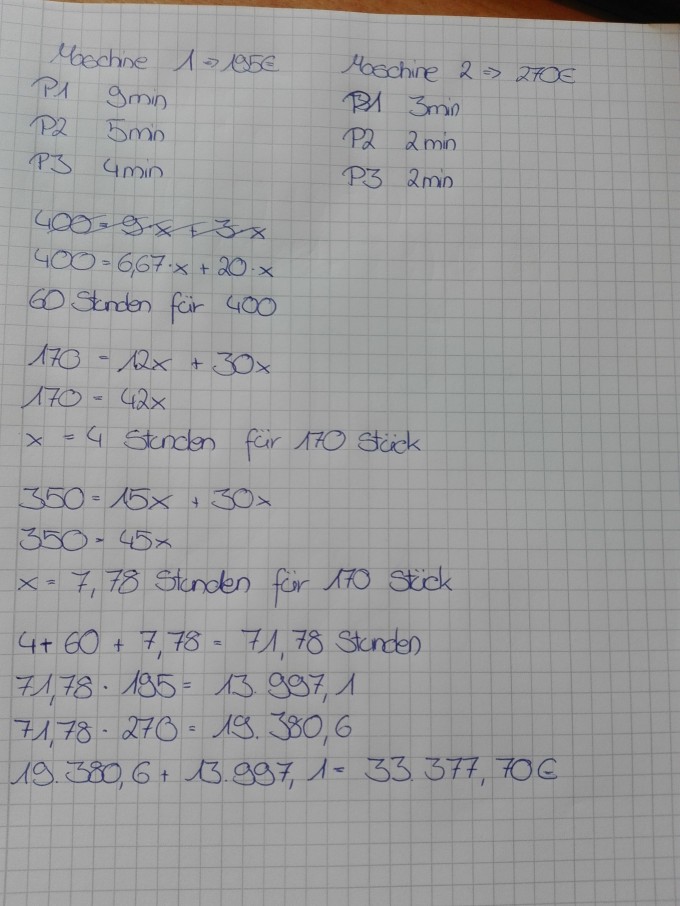 Maschine 1 => 195€
P1 9min
P2 5min
P3 4min
Maschine 2 => 270€
P1 3min
P2 2min
P3 2min
400 = 9x + 3x
400 = 6,67·x + 20·x
60 Stunden für 400
170 = 12x + 30x
170 = 42x
x = 4 Stunden für 170 Stück
350 = 15x + 30x
350 = 45x
x = 7,78 Stunden für 170 Stück
4 + 60 + 7,78 = 71,78 Stunden
71,78 · 195 = 13.997,1
71,78 · 270 = 19.380,6
19.380,6 + 13.997,1 = 33.377,70€